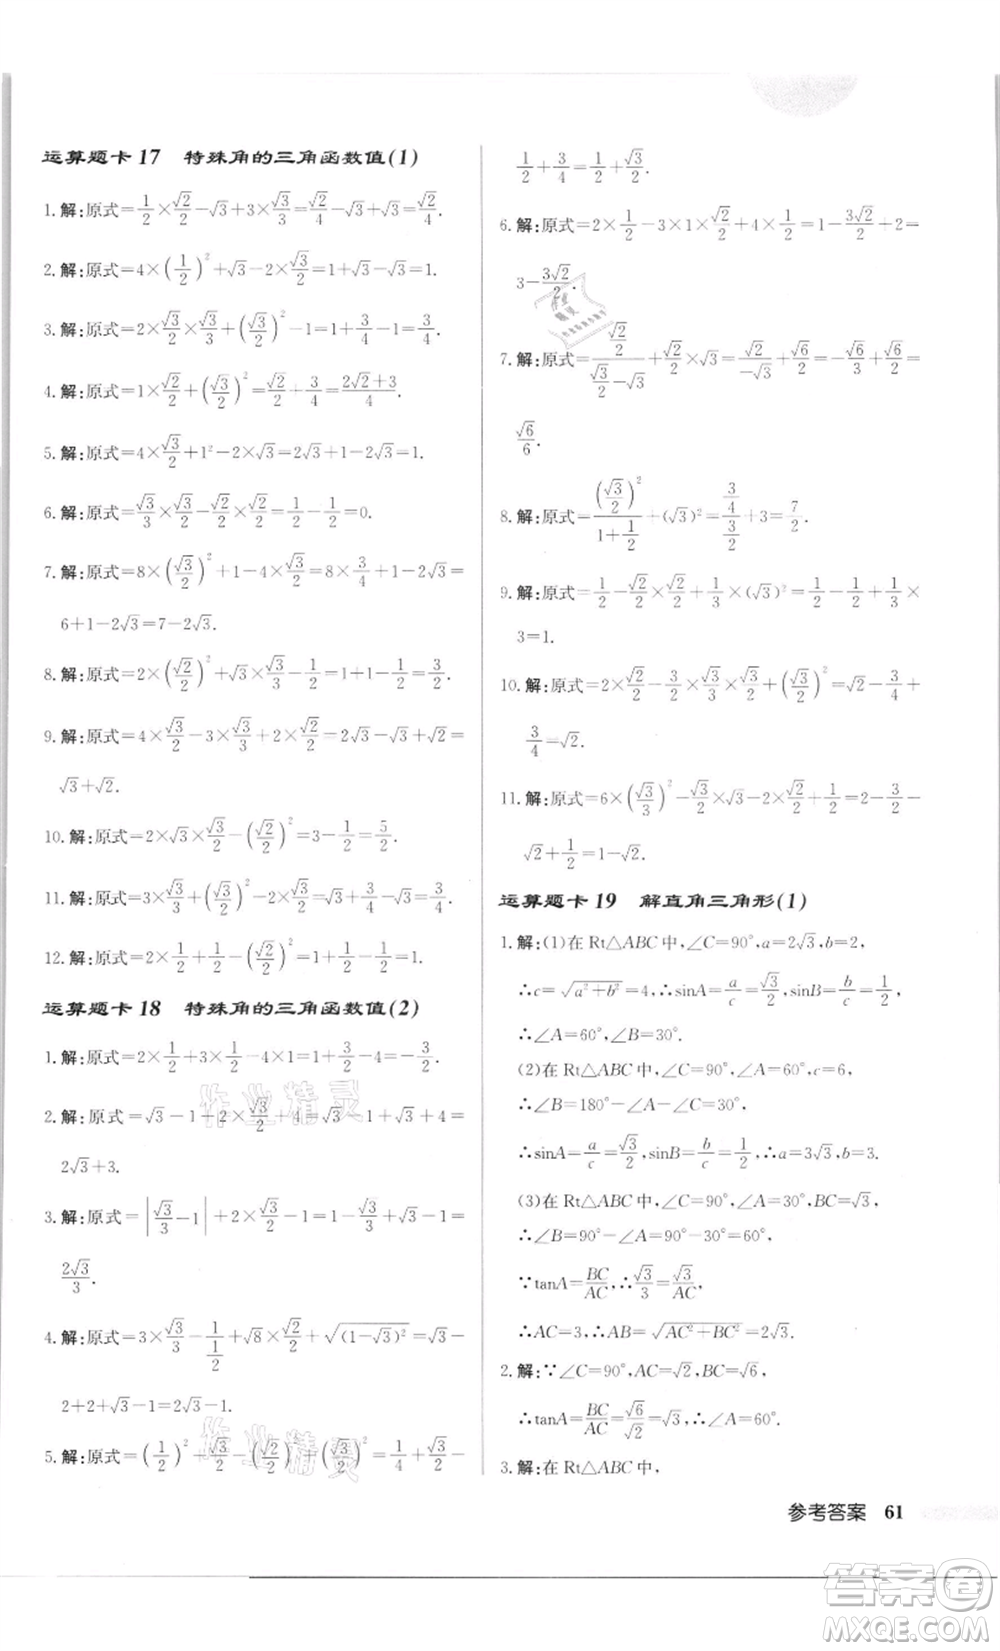 运算题卡 17 特殊角的三角函数值(1)
1.解:原式=$\frac{1}{2}×\frac{\sqrt{2}}{2}-\sqrt{3}+3×\frac{\sqrt{3}}{3}=\frac{\sqrt{2}}{4}-\sqrt{3}+\sqrt{3}=\frac{\sqrt{2}}{4}$.
2.解:原式=$4×(\frac{1}{2})^2+\sqrt{3}-2×\frac{\sqrt{3}}{2}=1+\sqrt{3}-\sqrt{3}=1$.
3.解:原式=$2×\frac{\sqrt{3}}{2}×\frac{\sqrt{3}}{2}+(\frac{\sqrt{3}}{2})^2-1=\frac{3}{2}+\frac{3}{4}-1=\frac{5}{4}$.
4.解:原式=$1×\frac{\sqrt{2}}{2}+(\frac{\sqrt{3}}{2})^2=\frac{\sqrt{2}}{2}+\frac{3}{4}=\frac{2\sqrt{2}+3}{4}$.
5.解:原式=$4×\frac{\sqrt{3}}{2}+1^2-2×\sqrt{3}=2\sqrt{3}+1-2\sqrt{3}=1$.
6.解:原式=$\frac{\sqrt{3}}{3}×\frac{\sqrt{3}}{2}-\frac{\sqrt{2}}{2}×\frac{\sqrt{2}}{2}=\frac{1}{2}-\frac{1}{2}=0$.
7.解:原式=$8×(\frac{\sqrt{3}}{2})^2+1-4×\frac{\sqrt{3}}{2}=8×\frac{3}{4}+1-2\sqrt{3}=$
$6+1-2\sqrt{3}=7-2\sqrt{3}$.
8.解:原式=$2×(\frac{\sqrt{2}}{2})^2+\sqrt{3}×\frac{\sqrt{3}}{3}-\frac{1}{2}=1+1-\frac{1}{2}=\frac{3}{2}$.
9.解:原式=$4×\frac{\sqrt{3}}{2}-3×\frac{\sqrt{3}}{3}+2×\frac{\sqrt{2}}{2}=2\sqrt{3}-\sqrt{3}+\sqrt{2}=$
$\sqrt{3}+\sqrt{2}$.
10.解:原式=$2×\sqrt{3}×\frac{\sqrt{3}}{2}-(\frac{\sqrt{2}}{2})^2=3-\frac{1}{2}=\frac{5}{2}$.
11.解:原式=$3×\frac{\sqrt{3}}{3}+(\frac{\sqrt{2}}{2})^2-2×\frac{\sqrt{3}}{2}=\sqrt{3}+\frac{1}{2}-\sqrt{3}=\frac{1}{2}$.
12.解:原式=$2×\frac{1}{2}+\frac{1}{2}-(\frac{\sqrt{3}}{2})^2=1+\frac{1}{2}-\frac{3}{4}=\frac{3}{4}$.
运算题卡 18 特殊角的三角函数值(2)
1.解:原式=$2×\frac{1}{2}+3×\frac{1}{2}-4×1=1+\frac{3}{2}-4=-\frac{3}{2}$.
2.解:原式=$\sqrt{3}-1+2×\frac{\sqrt{3}}{2}+4=\sqrt{3}-1+\sqrt{3}+4=$
$2\sqrt{3}+3$.
3.解:原式=$|\frac{\sqrt{3}}{3}-1|+2×\frac{\sqrt{3}}{2}=1-\frac{\sqrt{3}}{3}+\sqrt{3}=1+$
$\frac{2\sqrt{3}}{3}$.
4.解:原式=$3×\frac{\sqrt{3}}{3}-\frac{1}{\frac{1}{2}}+\sqrt{8}×\frac{\sqrt{2}}{2}+\sqrt{(1-\sqrt{3})^2}=\sqrt{3}-$
$2+2+\sqrt{3}-1=2\sqrt{3}-1$.
5.解:原式=$(\frac{1}{2})^2+\frac{\sqrt{3}}{2}-(\frac{\sqrt{2}}{2})^2+(\frac{\sqrt{3}}{2})^2=\frac{1}{4}+\frac{\sqrt{3}}{2}-$
$\frac{1}{2}+\frac{3}{4}=\frac{1}{2}+\frac{\sqrt{3}}{2}$.
6.解:原式=$2×\frac{1}{2}-3×1×\frac{\sqrt{2}}{2}+4×\frac{1}{2}=1-\frac{3\sqrt{2}}{2}+2=$
$3-\frac{3\sqrt{2}}{2}$.
7.解:原式=$\frac{\frac{\sqrt{2}}{2}}{\frac{\sqrt{3}}{2}-\sqrt{3}}+\frac{\sqrt{2}}{2}×\sqrt{3}=\frac{\sqrt{2}}{-\sqrt{3}}+\frac{\sqrt{6}}{2}=-\frac{\sqrt{6}}{3}+\frac{\sqrt{6}}{2}=$
$\frac{\sqrt{6}}{6}$.
8.解:原式=$\frac{(\frac{\sqrt{3}}{2})^2}{1+\frac{1}{2}}+(\sqrt{3})^2=\frac{\frac{3}{4}}{\frac{3}{2}}+3=\frac{7}{2}$.
9.解:原式=$\frac{1}{2}-\frac{\sqrt{2}}{2}×\frac{\sqrt{2}}{2}+\frac{1}{3}×(\sqrt{3})^2=\frac{1}{2}-\frac{1}{2}+\frac{1}{3}×$
3=1.
10.解:原式=$2×\frac{\sqrt{2}}{2}-\frac{3}{2}×\frac{\sqrt{3}}{3}×\frac{\sqrt{3}}{2}+(\frac{\sqrt{3}}{2})^2=\sqrt{2}-\frac{3}{4}+$
$\frac{3}{4}=\sqrt{2}$.
11.解:原式=$6×(\frac{\sqrt{3}}{3})^2-\frac{\sqrt{3}}{2}×\sqrt{3}-2×\frac{\sqrt{2}}{2}+\frac{1}{2}=2-\frac{3}{2}-$
$\sqrt{2}+\frac{1}{2}=1-\sqrt{2}$.
运算题卡 19 解直角三角形(1)
1.解:(1)在 Rt△ABC 中,∠C=90°,a=$2\sqrt{3}$,b=2,
∴c=$\sqrt{a^2+b^2}$=4,∴sinA=$\frac{a}{c}=\frac{\sqrt{3}}{2}$,sinB=$\frac{b}{c}=\frac{1}{2}$,
∴∠A=60°,∠B=30°.
(2)在 Rt△ABC 中,∠C=90°,∠A=60°,c=6,
∴∠B=180°-∠A-∠C=30°,
∴sinA=$\frac{a}{c}=\frac{\sqrt{3}}{2}$,sinB=$\frac{b}{c}=\frac{1}{2}$,∴a=$3\sqrt{3}$,b=3.
(3)在 Rt△ABC 中,∠C=90°,∠A=30°,BC=$\sqrt{3}$,
∴∠B=90°-∠A=90°-30°=60°.
∵tanA=$\frac{BC}{AC}$,∴$\frac{\sqrt{3}}{3}=\frac{\sqrt{3}}{AC}$,
∴AC=3,∴AB=$\sqrt{AC^2+BC^2}=2\sqrt{3}$.
2.解:∵∠C=90°,AC=$\sqrt{2}$,BC=$\sqrt{6}$,
∴tanA=$\frac{BC}{AC}=\frac{\sqrt{6}}{\sqrt{2}}=\sqrt{3}$,∴∠A=60°.
3.解:在 Rt△ABC 中,
参考答案 61
作业精灵
作业精灵
答案卷
MXQE.COM